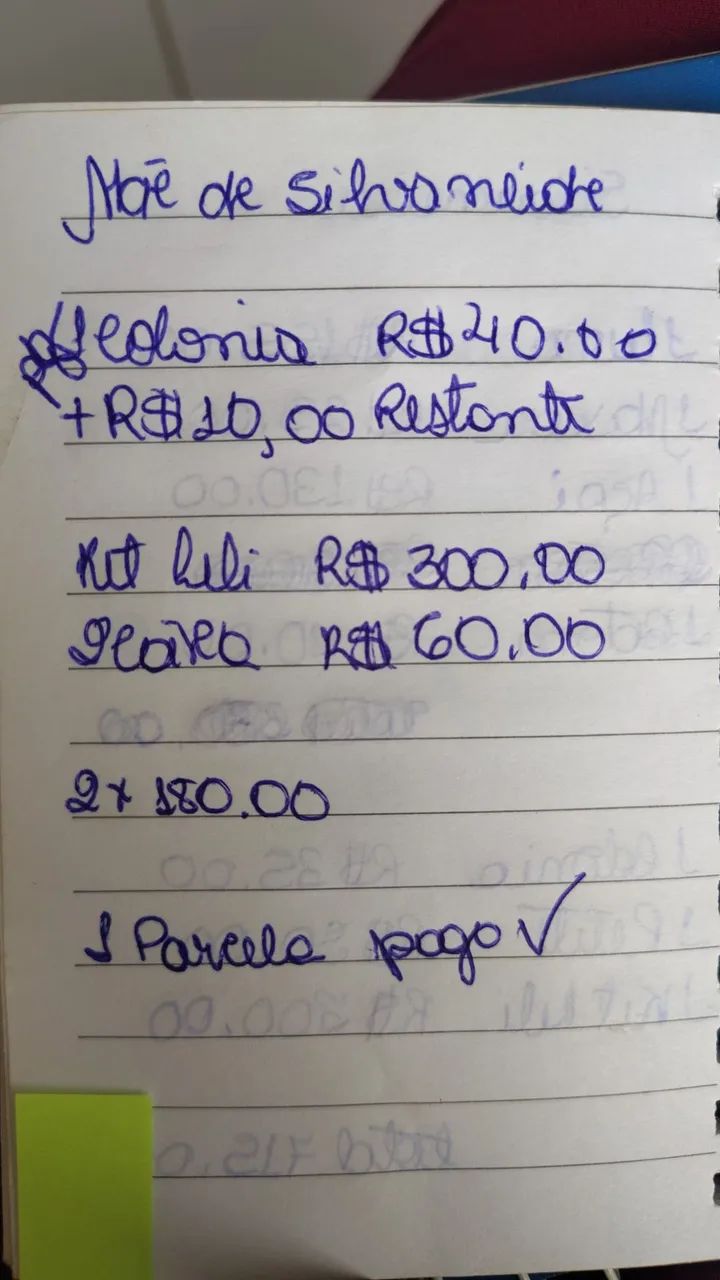 Mãe de Silvaneide
1 colonia R$ 40.00
+ R$ 10,00 Restante
Kit lili R$ 300.00
R$ 60.00
2x 180.00
1 Parcela pago ✓